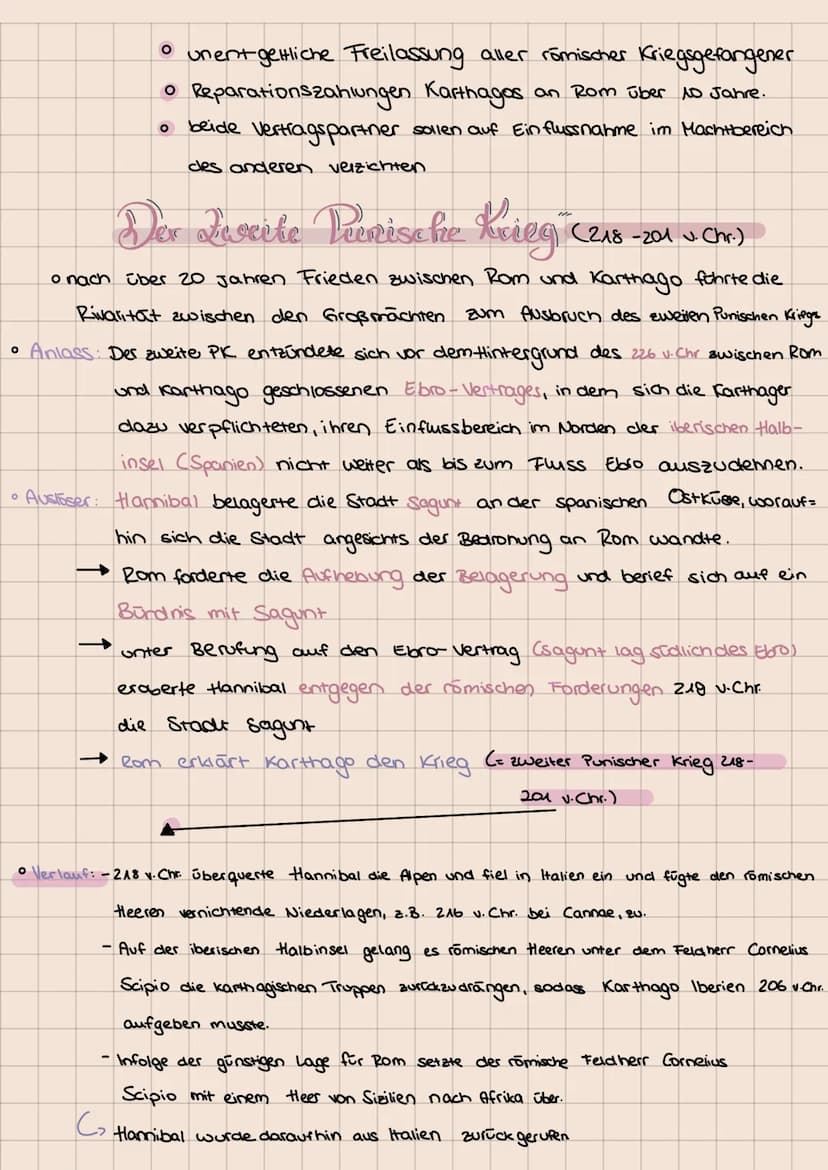 unentgeltliche Freilassung aller römischer Kriegsgefangener
Reparationszahlungen Karthagos an Rom über 10 Jahre.
beide Vertragspartner sollen auf Einflussnahme im Machtbereich
des anderen verzichten
Der Zweite Punische Krieg (218-201 v. Chr.)
nach über 20 Jahren Frieden zwischen Rom und Karthago führte die
Rivarität zwischen den Großmächten zum Ausbruch des zweiten Punischen Kriegs
Anlass: Der zweite PK entzündete sich vor dem Hintergrund des 226 v. Chr zwischen Rom
und Karthago geschlossenen Ebro-Vertrages, in dem sich die Karthager
dazu verpflichteten, ihren Einflussbereich im Norden der iberischen Halb-
insel (Spanien) nicht weiter als bis zum Fluss Ebro auszudehnen.
Auslöser: Hannibal belagerte die Stadt Sagunt an der spanischen Ostküste, worauf=
hin sich die Stadt angesichts der Bedrohung an Rom wandte.
→ Rom forderte die Aufhebung der Belagerung und berief sich auf ein
Bündnis mit Sagunt
→ unter Berufung auf den Ebro-Vertrag (Sagunt lag südlich des Ebro)
eroberte Hannibal entgegen der römischen Forderungen 219 v. Chr.
die Stadt Sagunt
→ Rom erklärt Karthago den Krieg (= zweiter Punischer Krieg 218-
201 v. Chr.)
Verlauf: - 218 v. Chr. überquerte Hannibal die Alpen und fiel in Italien ein und fügte den römischen
Heeren vernichtende Niederlagen, z.B. 216 v. Chr. bei Cannae, zu.
- Auf der iberischen Halbinsel gelang es römischen Heeren unter dem Feldherr Cornelius
Scipio die karthagischen Truppen zurückzudrängen, sodass Karthago Iberien 206 v. Chr.
aufgeben musste.
- Infolge der günstigen Lage für Rom setzte der römische Feldherr Cornelius
Scipio mit einem Heer von Sizilien nach Afrika über.
Hannibal wurde daraufhin aus Italien zurückgerufen